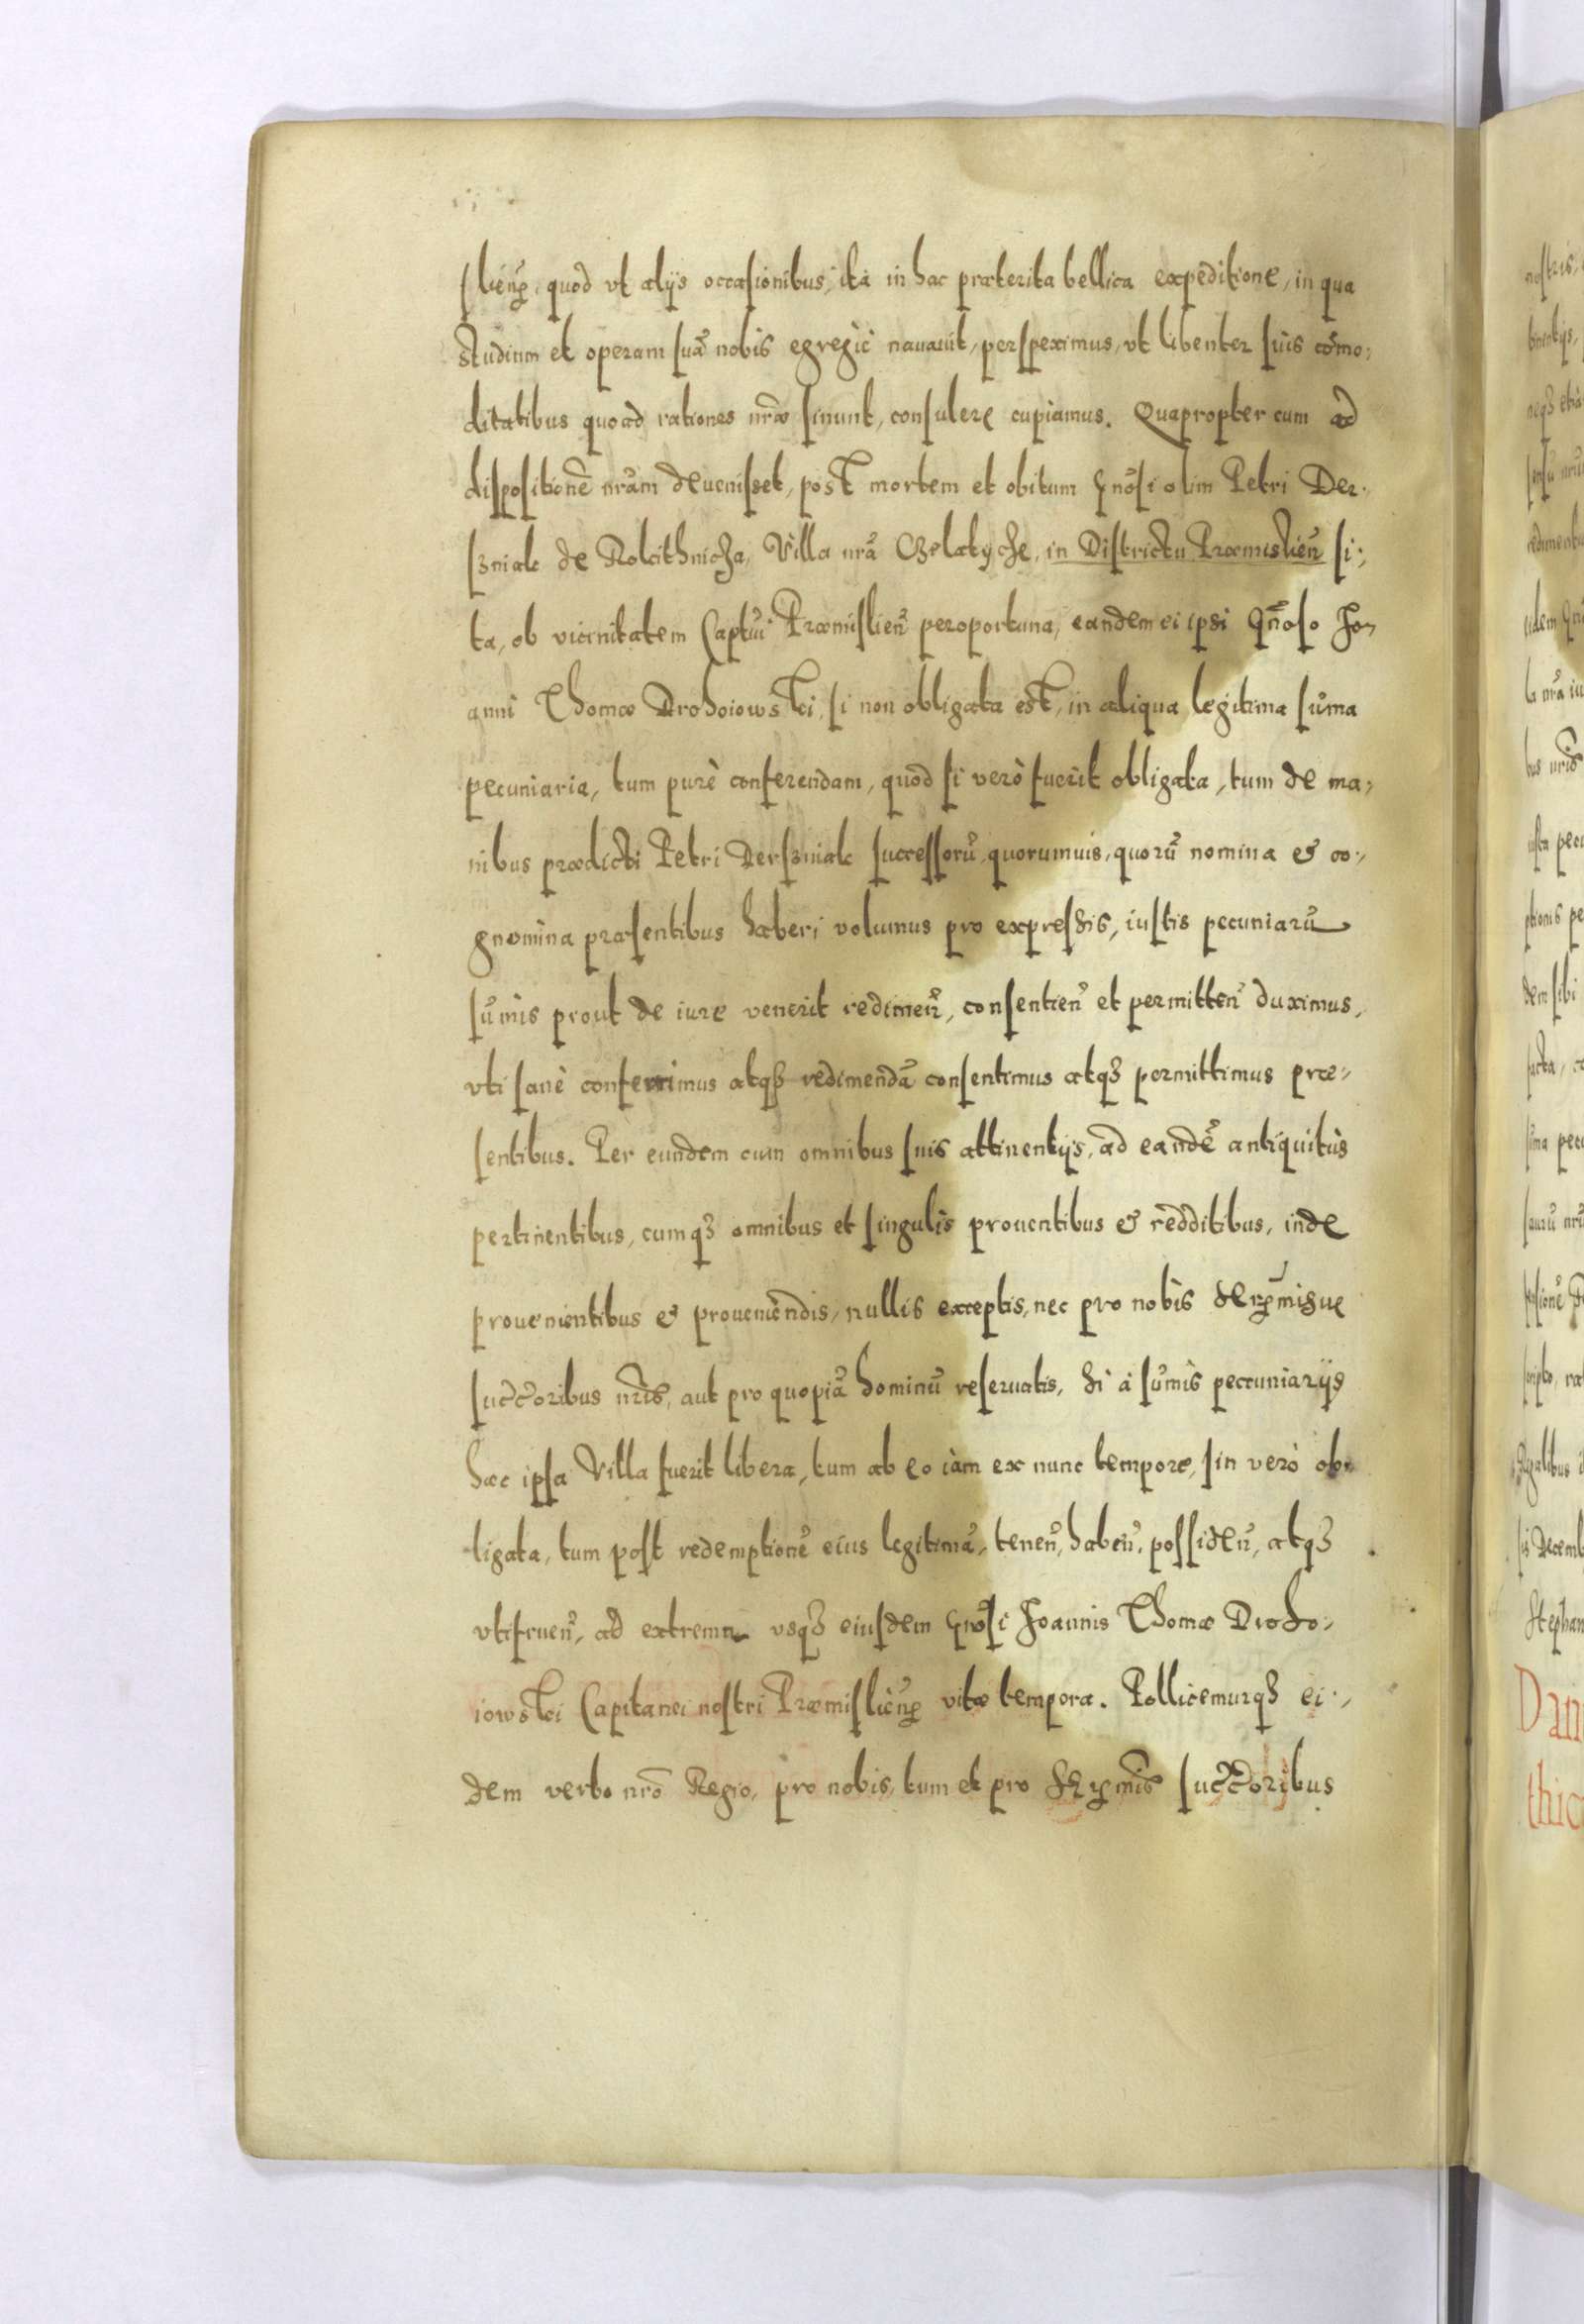 slien̄, quod vt alijs occasionibus, ita in hac præterita bellica expeditione, in qua
studium et operam suā nobis egregiè nauauit, perspeximus, vt libenter suis com̄o,
ditatibus quoad rationes nr̄æ sinunt, consulere cupiamus. Quapropter cum ad
dispositionē nr̄am deuenisset, post mortem et obitum Gn̄osi olim Petri Der,
szniak de Rokithnicza, Villa nr̄a Czelatycze, in Districtu Præmislien̄ si,
ta, ob vicinitatem Captūi Præmislien̄ peroportuna, eandem ei ipsi Gn̄oso Jo,
anni Thomæ Drohoiowski, si non obligata est, in aliqua legitima sum̄a
pecuniaria, tum purè conferendam, quod si verò fuerit obligata, tum de ma,
nibus prædicti Petri Derszniak successorū, quorumuis, quorū nomina & co,
gnomina præsentibus haberi volumus pro expressis, iustis pecuniarū
sum̄is prout de iure venerit redimen̄, consentien̄ et permitten̄ duximus,
vti sanè conferimus atq3 redimendā consentimus atq3 permittimus præ,
sentibus. Per eundem cum omnibus suis attinentijs, ad eandē antiquitùs
pertinentibus, cumq3 omnibus et singulis prouentibus & redditibus, inde
prouenientibus & proueniendis, nullis exceptis, nec pro nobis
succ̄oribus nr̄is, aut pro quopiā hominū reseruatis, si à sum̄is peccuniarijs
hæc ipsa Villa fuerit libera, tum ab eo iàm ex nunc tempore, sin verò ob,
ligata, tum post redemptionē eius legitimā, tenen̄, haben̄, possiden̄, atq3
vtifruen̄, ad extrema vsq3 eiusdem Gn̄osi Joannis Thomæ Droho,
iowski Capitanei nostri Præmislien̄ vitæ tempora. Pollicemurq3 ei,
dem verbo nr̄o Regio, pro nobis, tum et pro succ̄oribus